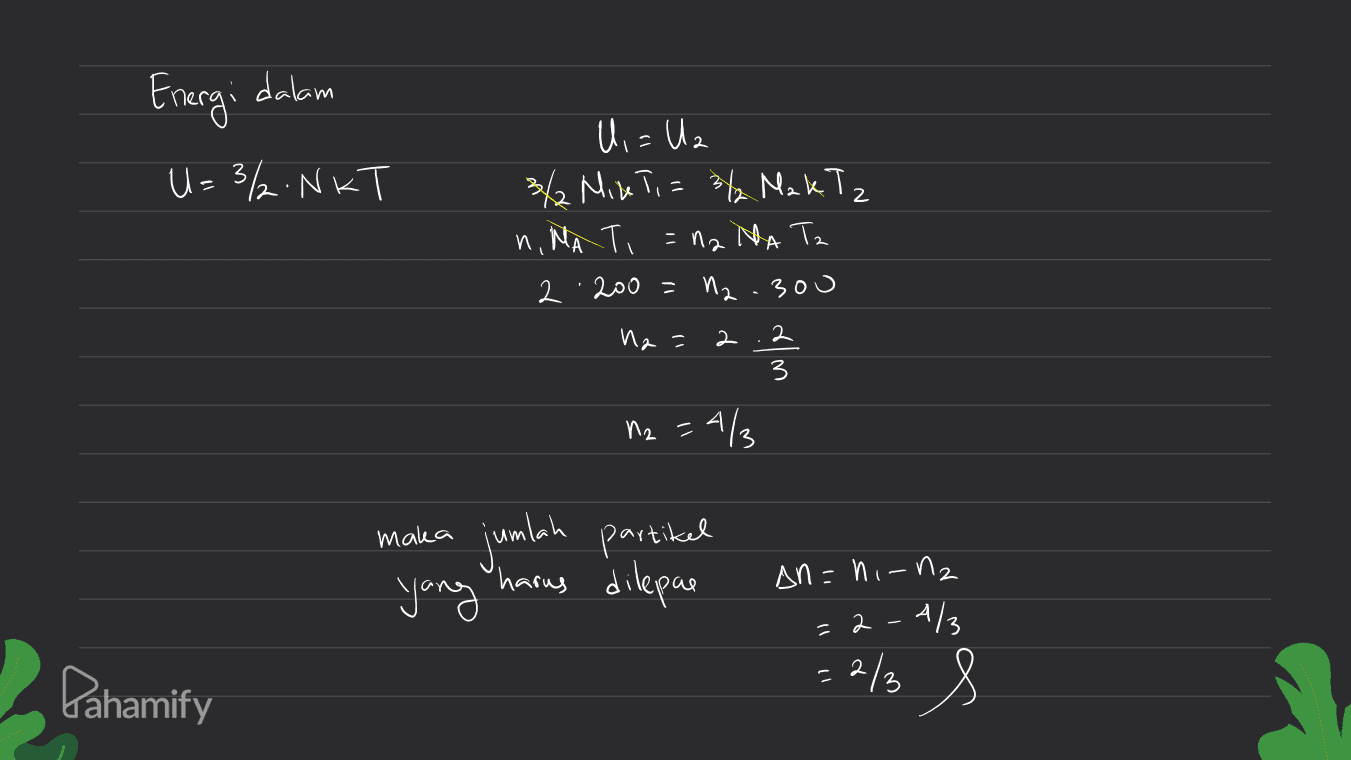 Energi dalam
U = 3/2 . NkT
U1 = U2
3/2 N1kT1 = 3/2 N2kT2
n1 NA T1 = n2 NA T2
2 . 200 = n2 . 300
n2 = 2 . 2/3
n2 = 4/3
maka jumlah partikel
yang harus dilepas
Δn = n1 - n2
= 2 - 4/3
= 2/3
Pahamify